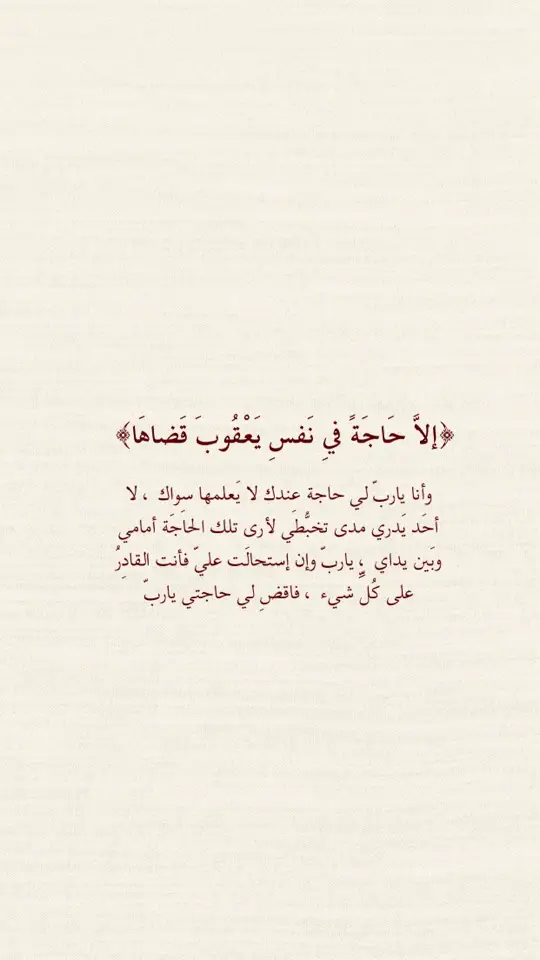 ﴿إلاَّ حَاجَةً فيِ نَفسِ يَعْقُوبَ قَضاهَا﴾
وأنا ياربّ لي حاجة عندك لا يَعلمها سواك ، لا
أحَد يَدري مدى تخبُّطي لأرى تلك الحَاجَة أمامي
وبَين يداي ، ياربّ وإن إستحالَت عليّ فأنت القادِرُ
على كُلِّ شيء ، فاقضِ لي حاجتي ياربّ